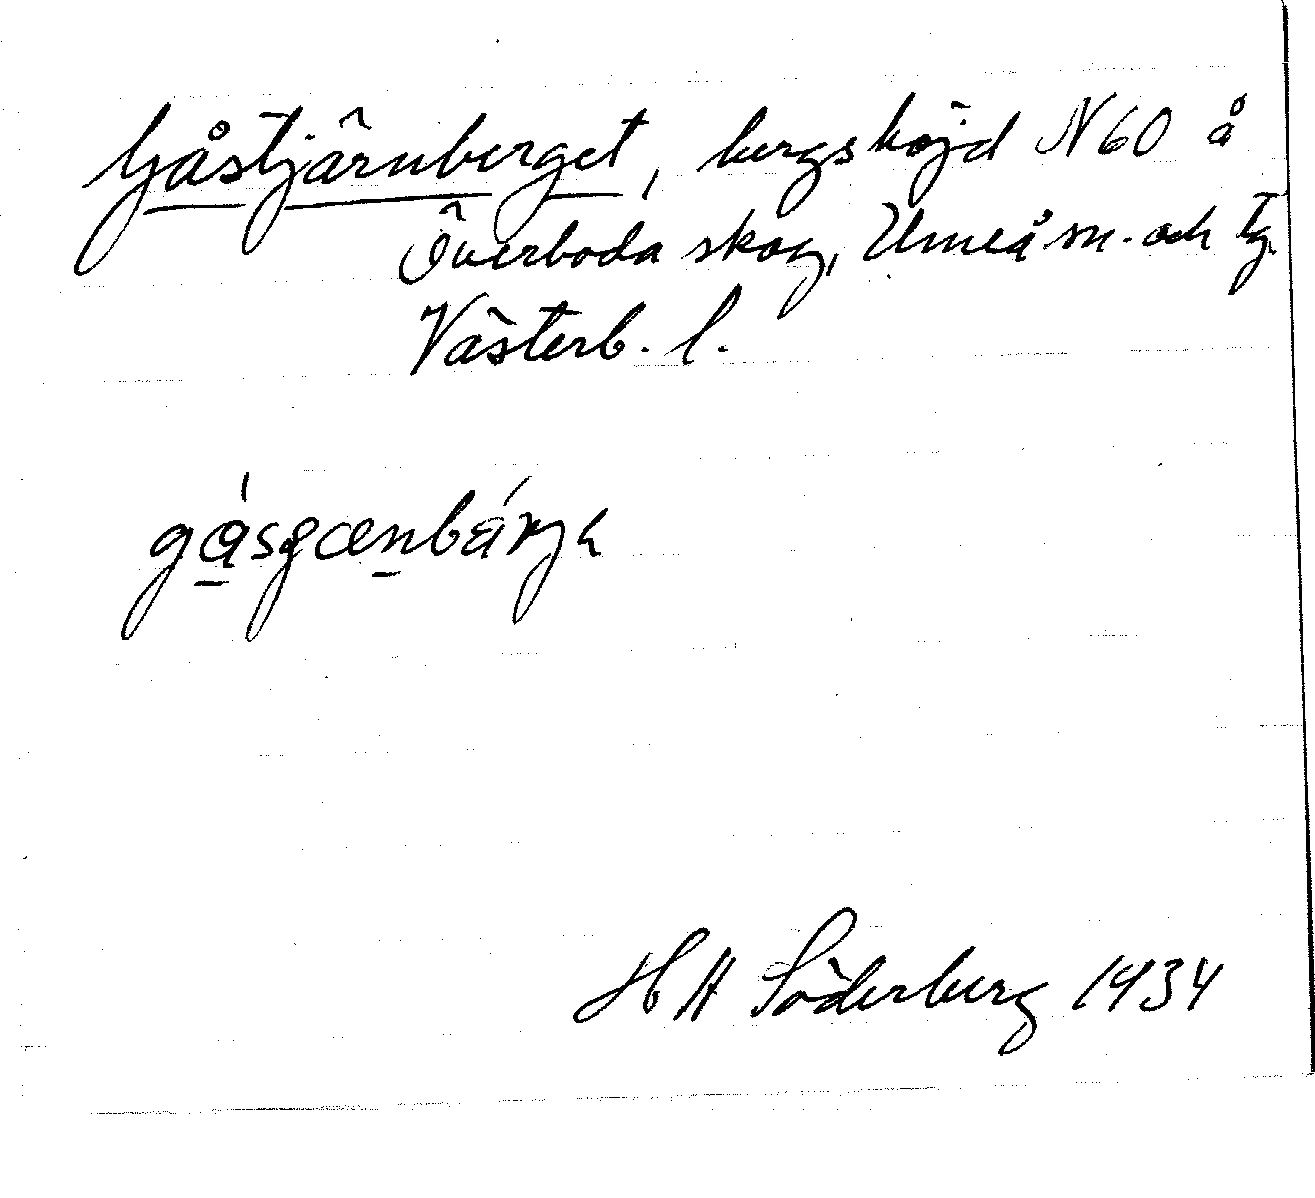 Gåstjärnberget, bergshöjd N 60 å
Överboda skog, Umeå sn. och tg.
Västerb. l.
H H Söderberg 1934